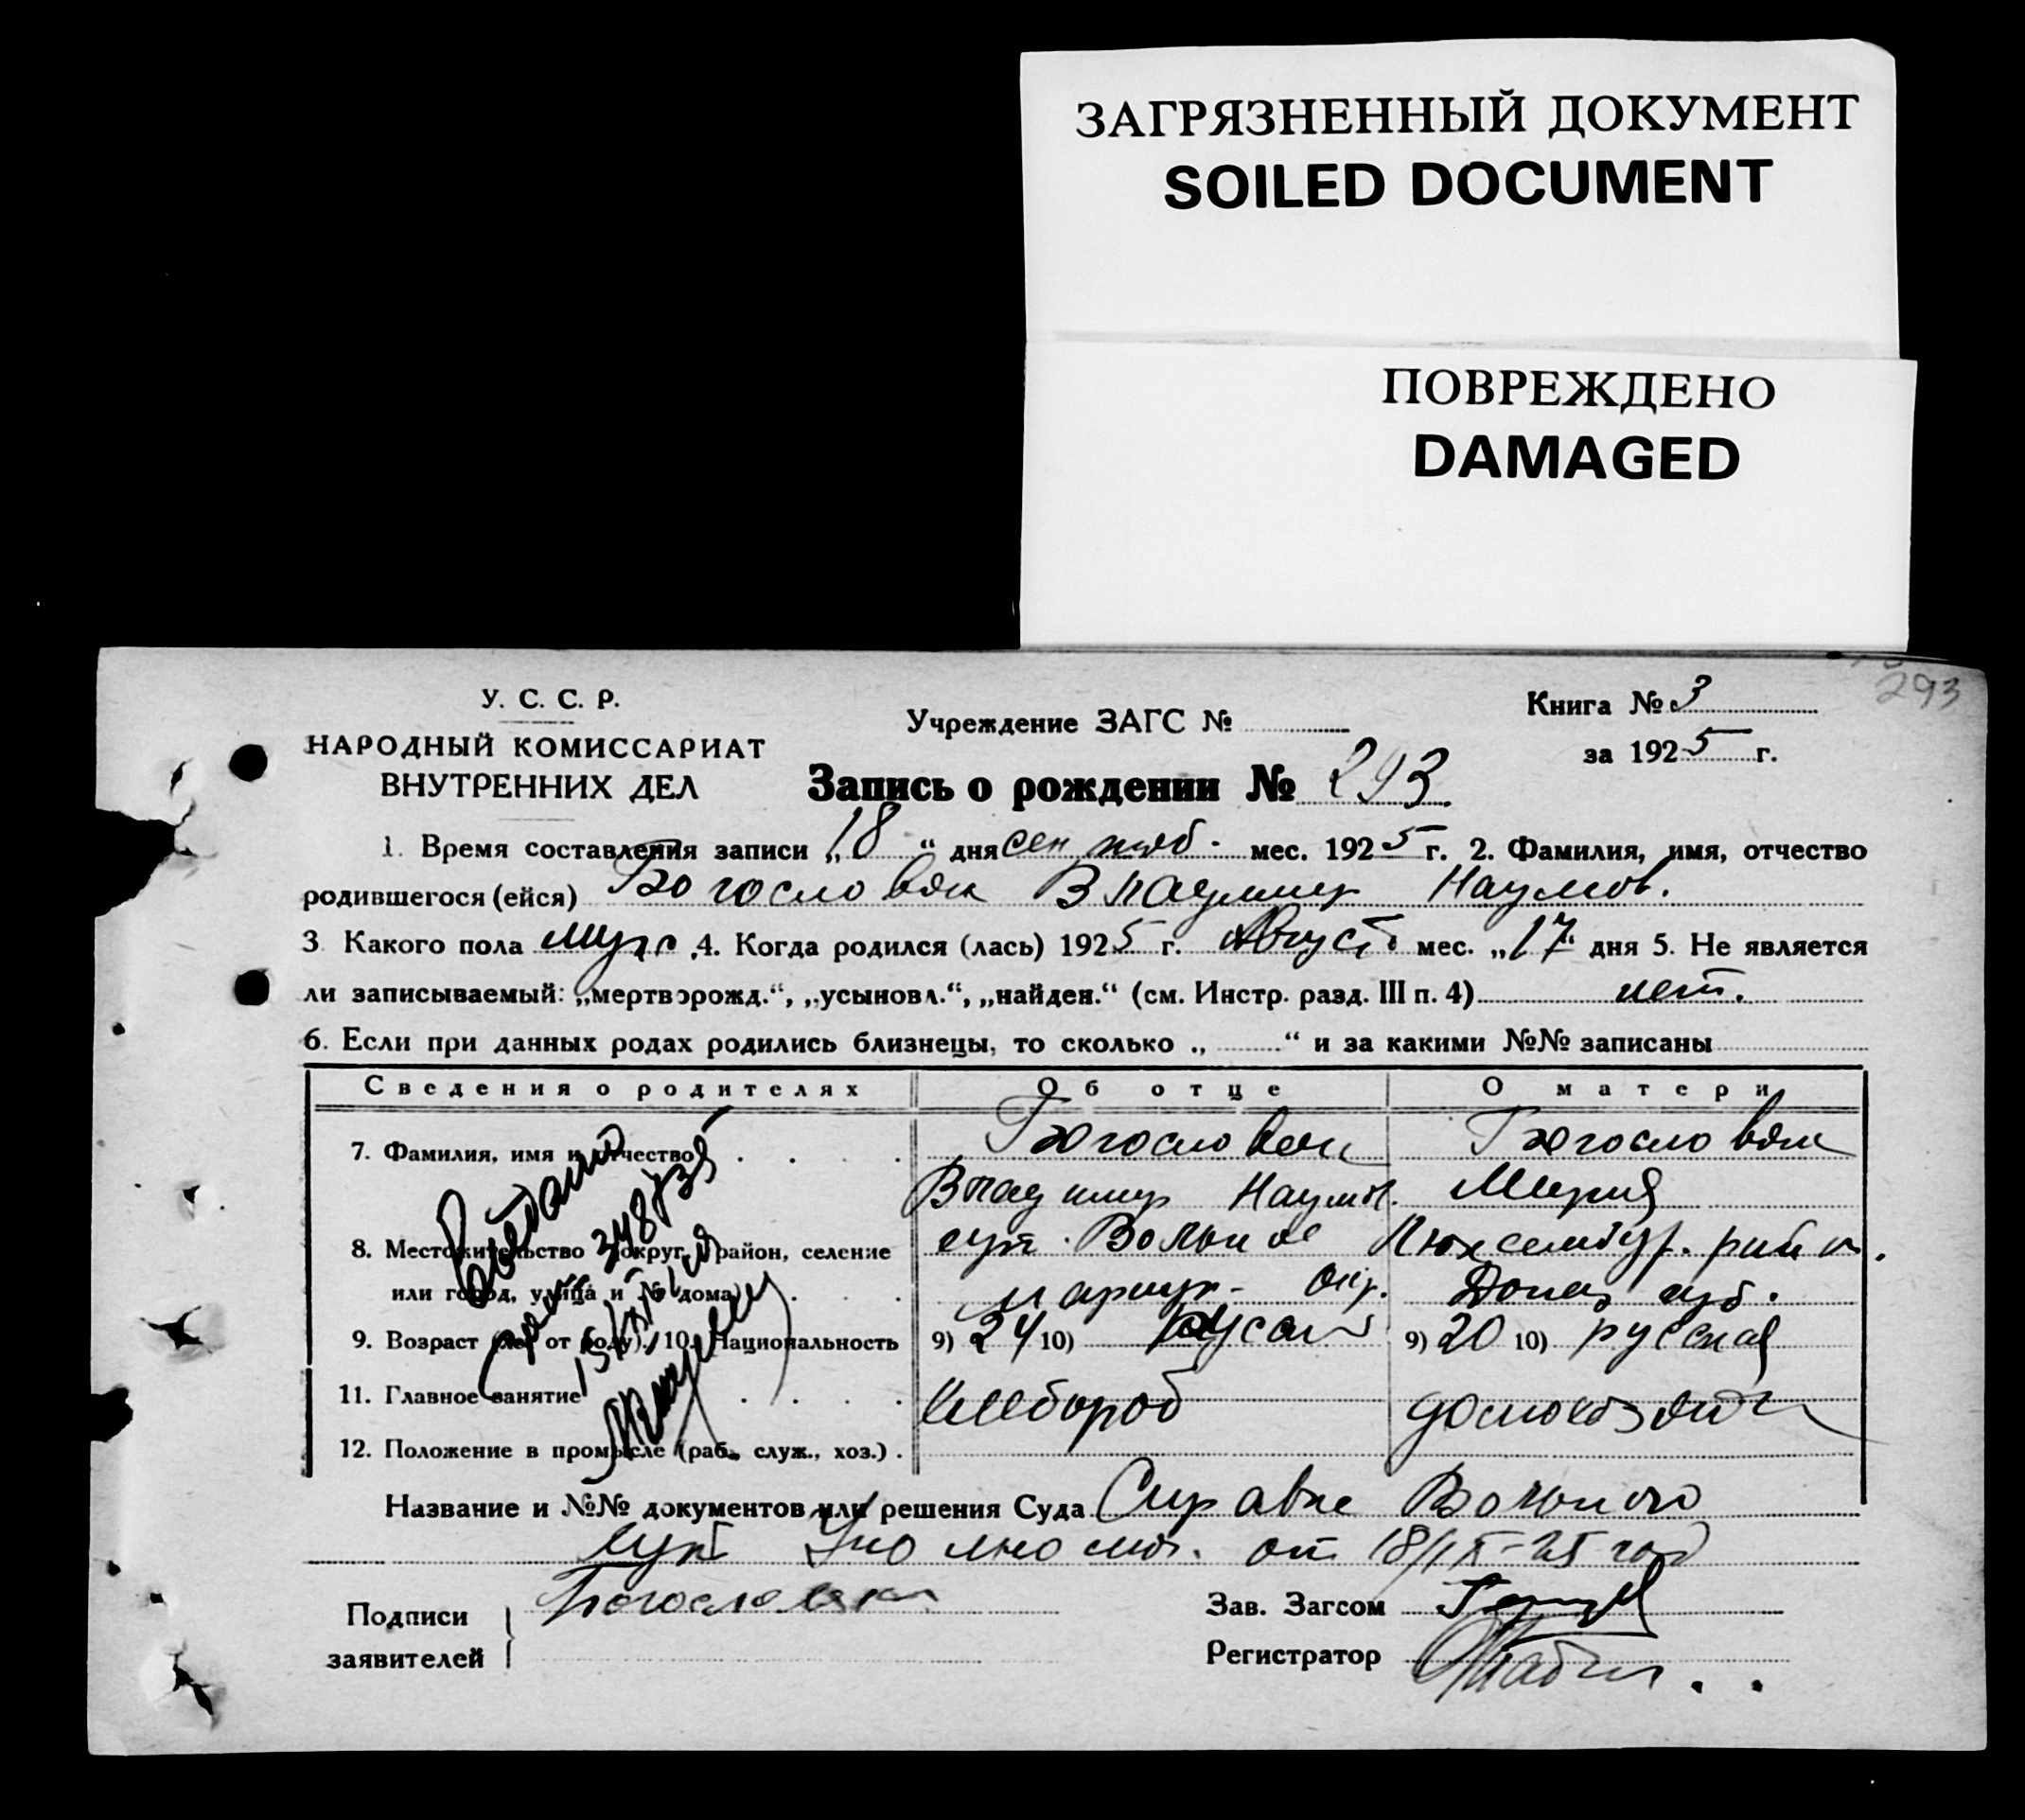 ЗАГРЯЗНЕННЫЙ ДОКУМЕНТ
SOILED DOCUMENT
ПОВРЕЖДЕНО
DAMAGED
293
У. С. С. Р.
НАРОДНЫЙ КОМИССАРИАТ
ВНУТРЕННИХ ДЕЛ
Учреждение ЗАГС №
Книга № 3
за 1925 г.
Запись о рождении № 293.
1. Время составления записи „18“ дня сентяб. мес. 1925 г. 2. Фамилия, имя, отчество
родившегося (ейся) Богословск Владимир Наумов.
3. Какого пола муж. 4. Когда родился (лась) 1925 г. Август. мес. „17“ дня 5. Не является
ли записываемый: „мертворожд.“, „усыновл.“, „найден.“ (см. Инстр. разд. III п. 4) нет.
6. Если при данных родах родились близнецы, то сколько „ “ и за какими №№ записаны
Сведения о родителях Об отце О матери
7. Фамилия, имя и отчество
Владимир Наумов. Мария
8. Местожительство (округ, район, селение Вольное Люксембург. район.
или город, улица и № дома) Мариуп. Окр. Донец губ.
9. Возраст (лет от роду). 10. Национальность 9) 24 10) 9) 20 10) русская
11. Главное занятие хлебороб
12. Положение в промысле (раб., служ., хоз.)
Название и №№ документов или решения Суда Справка
от 18/IX-25 год
Подписи
заявителей
Зав. Загсом
Регистратор